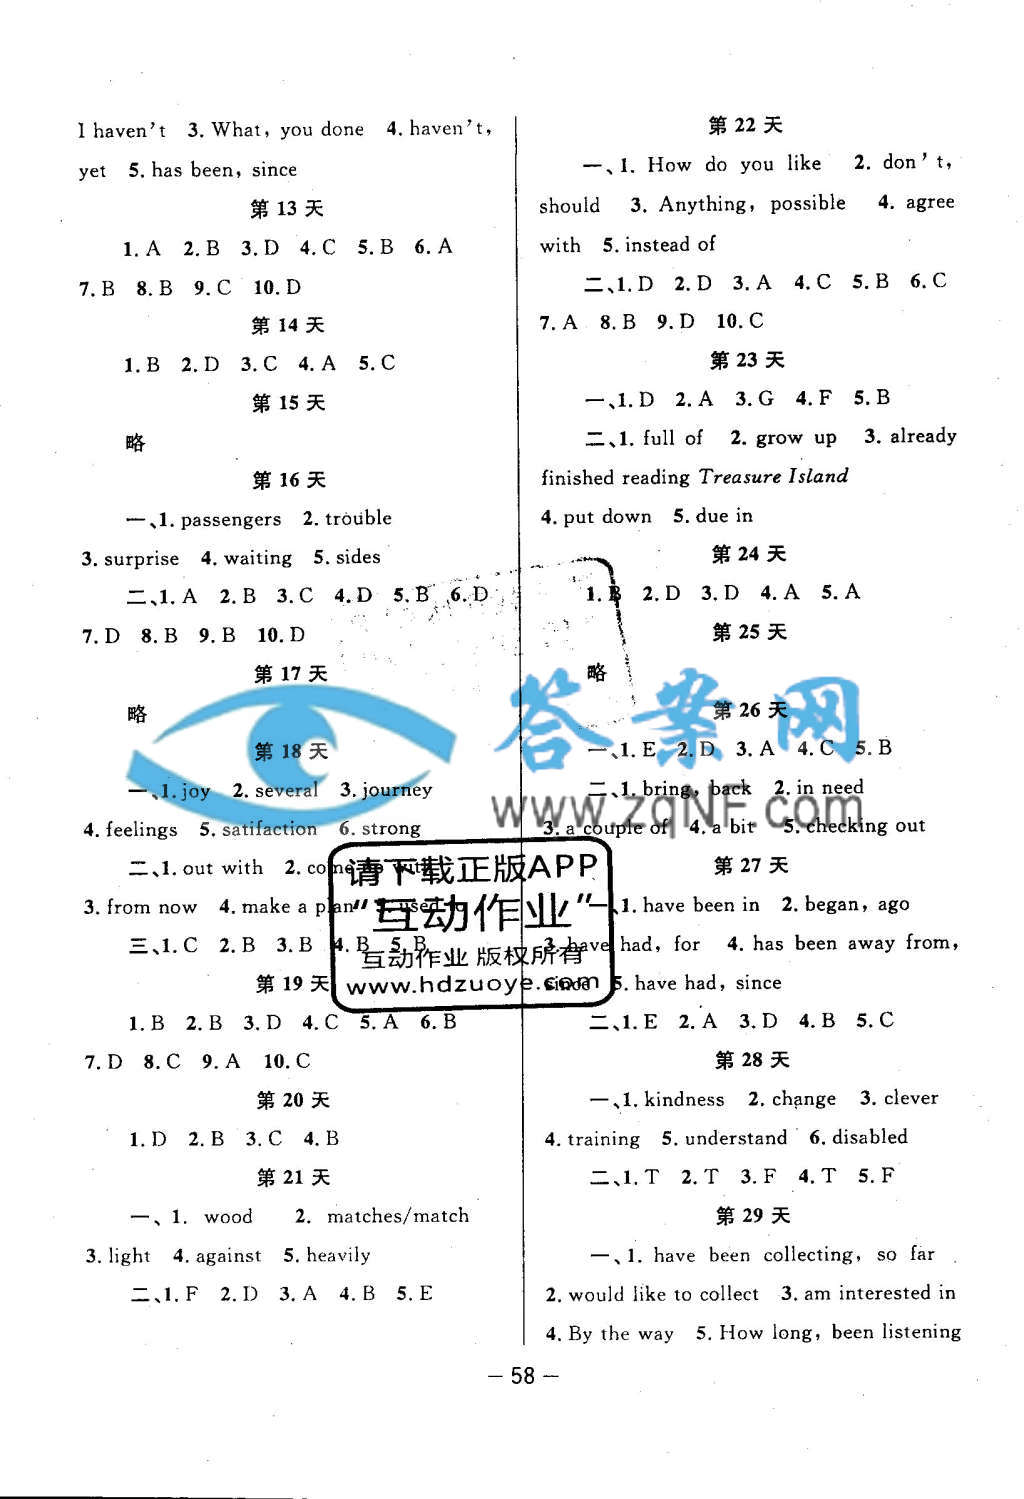 I haven't 3. What, you done 4. haven't,
yet 5. has been, since
第 13 天
1. A 2. B 3. D 4. C 5. B 6. A
7. B 8. B 9. C 10. D
第 14 天
1. B 2. D 3. C 4. A 5. C
第 15 天
略
第 16 天
一、1. passengers 2. trouble
3. surprise 4. waiting 5. sides
二、1. A 2. B 3. C 4. D 5. B 6. D
7. D 8. B 9. B 10. D
第 17 天
略
第 18 天
一、1. joy 2. several 3. journey
4. feelings 5. satifaction 6. strong
二、1. out with 2. come up with
3. from now 4. make a plan 5. used to
三、1. C 2. B 3. B 4. B 5. B
第 19 天
1. B 2. B 3. D 4. C 5. A 6. B
7. D 8. C 9. A 10. C
第 20 天
1. D 2. B 3. C 4. B
第 21 天
一、1. wood 2. matches/match
3. light 4. against 5. heavily
二、1. F 2. D 3. A 4. B 5. E
第 22 天
一、1. How do you like 2. don't,
should 3. Anything, possible 4. agree
with 5. instead of
二、1. D 2. D 3. A 4. C 5. B 6. C
7. A 8. B 9. D 10. C
第 23 天
一、1. D 2. A 3. G 4. F 5. B
二、1. full of 2. grow up 3. already
finished reading Treasure Island
4. put down 5. due in
第 24 天
1. B 2. D 3. D 4. A 5. A
第 25 天
略
第 26 天
一、1. E 2. D 3. A 4. C 5. B
二、1. bring, back 2. in need
3. a couple of 4. a bit 5. checking out
第 27 天
一、1. have been in 2. began, ago
3. have had, for 4. has been away from,
since 5. have had, since
二、1. E 2. A 3. D 4. B 5. C
第 28 天
一、1. kindness 2. change 3. clever
4. training 5. understand 6. disabled
二、1. T 2. T 3. F 4. T 5. F
第 29 天
一、1. have been collecting, so far
2. would like to collect 3. am interested in
4. By the way 5. How long, been listening
— 58 —
答案网
www.zqNF.com
请下载正版APP
“互动作业”
互动作业 版权所有
www.hdzuoye.com